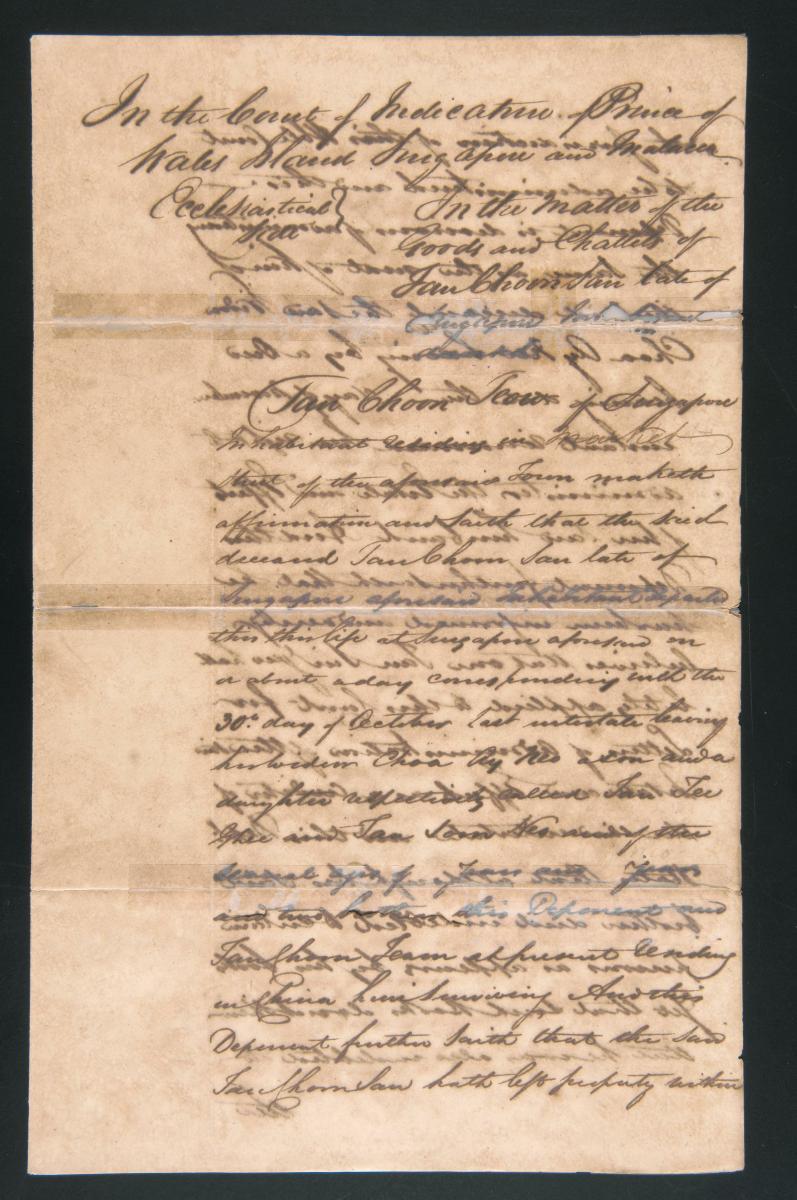 In the Court of Judicature of Prince of
Wales Island Singapore and Malacca
Ecclesiastical
In the Matter of the
Goods and Chattels of
Tan Choon San late of
Singapore
Tan Choon Teow of Singapore
Inhabitant residing in Market
Street of the aforesaid Town maketh
affirmation and saith that the said
deceased Tan Choon San late of
Singapore aforesaid Inhabitant departed
this life at Singapore aforesaid on
or about a day corresponding with the
30th day of October last intestate leaving
his widow Choa Ay Neo a son and a
daughter respectively called Tan Tee
Ghee and Tan Neo of the
several ages of Years and Years
and two brothers this Deponent and
Tan Choon Team at present residing
in China him surviving And this
Deponent further saith that the said
Tan Choon San hath left property within